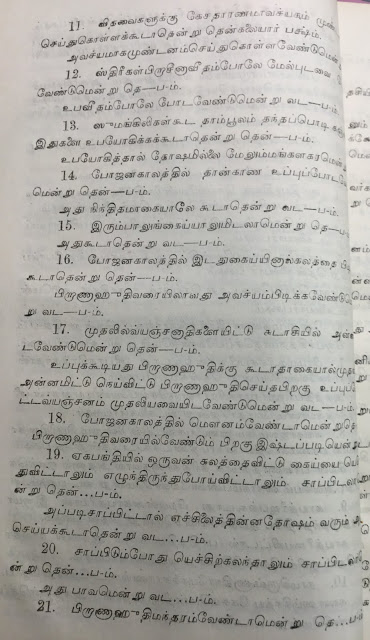 11. விதவைகளுக்கு கேசதாரணமாவச்யகம் முண்
செய்துகொள்ளக்கூடாதென்று தென்கலையார் பக்ஷம்.
அவச்யமாகமுண்டனம்செய்துகொள்ளவேண்டுமெ
12. ஸ்திரீகள்பிருசீனாவீதம்போலே மேல்புடவை
வேண்டுமென்று தெ—ப-ம்.
உபவீதம்போலே போடவேண்டுமென்று வட—ப-ம்.
13. ஸுமங்கிலிகள்கூட தாம்பூலம் தந்தபொடிக
இதுகளை உபயோகிக்கக்கூடாதென்று தென்—ப-ம்.
உபயோகித்தால் தோஷமில்லை மேலும்மங்களகரமெ
14. போஜனகாலத்தில் தான்காண உப்புப்போட
மென்று தென்—ப-ம்.
அது நிந்திதமாகையாலே கூடாதென்று வட—ப-ம்.
15. இரும்பாலுங்கையாலுமிடலாமென்று தெ—ப-
அதுகூடாதென்று வட—ப-ம்.
16. போஜனகாலத்தில் இடதுகையினால்கலத்தை பி
கூடாதென்று தென்—ப-ம்.
பிராணாஹுதிவரையிலாவது அவச்யம்பிடிக்கவேண்டு
று வட—ப-ம்.
17. முதலில்வ்யஞ்சனாதிகளையிட்டு கடாசியில் அன்ன
டவேண்டுமென்று தென்—ப-ம்.
உப்புக்கூடியது பிராணாஹுதிக்கு கூடாதாகையால்முத
அன்னமிட்டு நெய்விட்டு பிராணாஹுதிசெய்தபிறகு உப்பு
ட்டவ்யஞ்சனம் முதலியவையிடவேண்டுமென்று வட—ப-ம்
18. போஜனகாலத்தில் மௌனம்வேண்டாமென்று
பிராணாஹுதிவரையில்வேண்டும் பிறகு இஷ்டப்படியென்
19. ஏகபங்தியில் ஒருவன் கலத்தைவிட்டு கையை யெ
துவிட்டாலும் எழுந்திருந்துபோய்விட்டாலும் சாப்பிடலா
ன்று தென்...ப-ம்.
அப்படிசாப்பிட்டால் எச்சிலைத்தின்னதோஷம் வரும் அ
செய்யக்கூடாதென்று வட...ப-ம்.
20. சாப்பிடும்போது யெச்சிற்கலந்தாலும் சாப்பிடலா
ன்று தென்...ப-ம்.
அது பாவமென்று வட...ப-ம்.
21. பிராணாஹுதிமந்தரம்வேண்டாமென்று தெ...ப-ம்